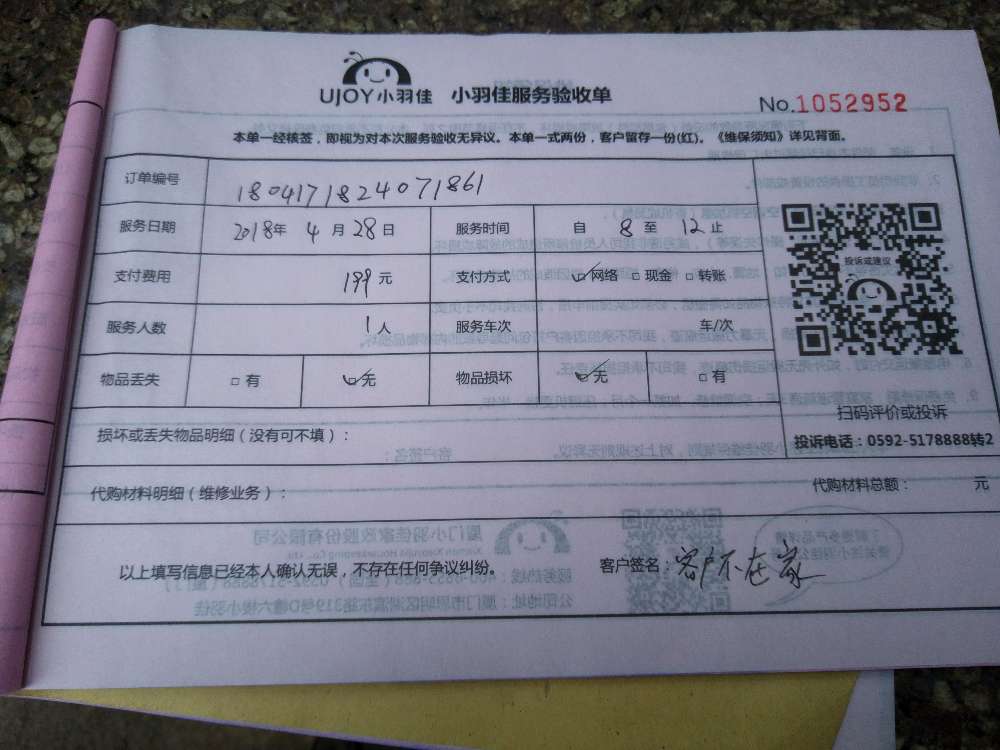 UJOY小羽佳 小羽佳服务验收单
No.1052952
本单一经核签，即视为对本次服务验收无异议。本单一式两份，客户留存一份(红)。《维保须知》详见背面。
订单编号 1804171824071861
服务日期 2018年 4月28日 服务时间 自 8 至 12 止
支付费用 199元 支付方式 网络 现金 转账
服务人数 1人 服务车次 车/次
物品丢失 有 无 物品损坏 无 有
投诉或建议
扫码评价或投诉
投诉电话：0592-5178888转2
损坏或丢失物品明细（没有可不填）：
代购材料明细（维修业务）： 代购材料总额： 元
以上填写信息已经本人确认无误，不存在任何争议纠纷。 客户签名：客户不在家